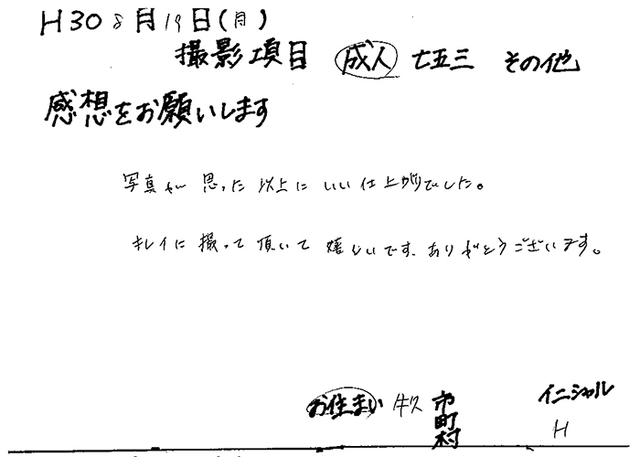 H30 8月19日(月)
撮影項目 成人 七五三 その他
感想をお願いします
写真が 思った 以上に いい 仕上がりでした。
キレイに 撮って 頂いて 嬉しいです、ありがとうございます。
お住まい 牛久 市 町 村 イニシャル
H